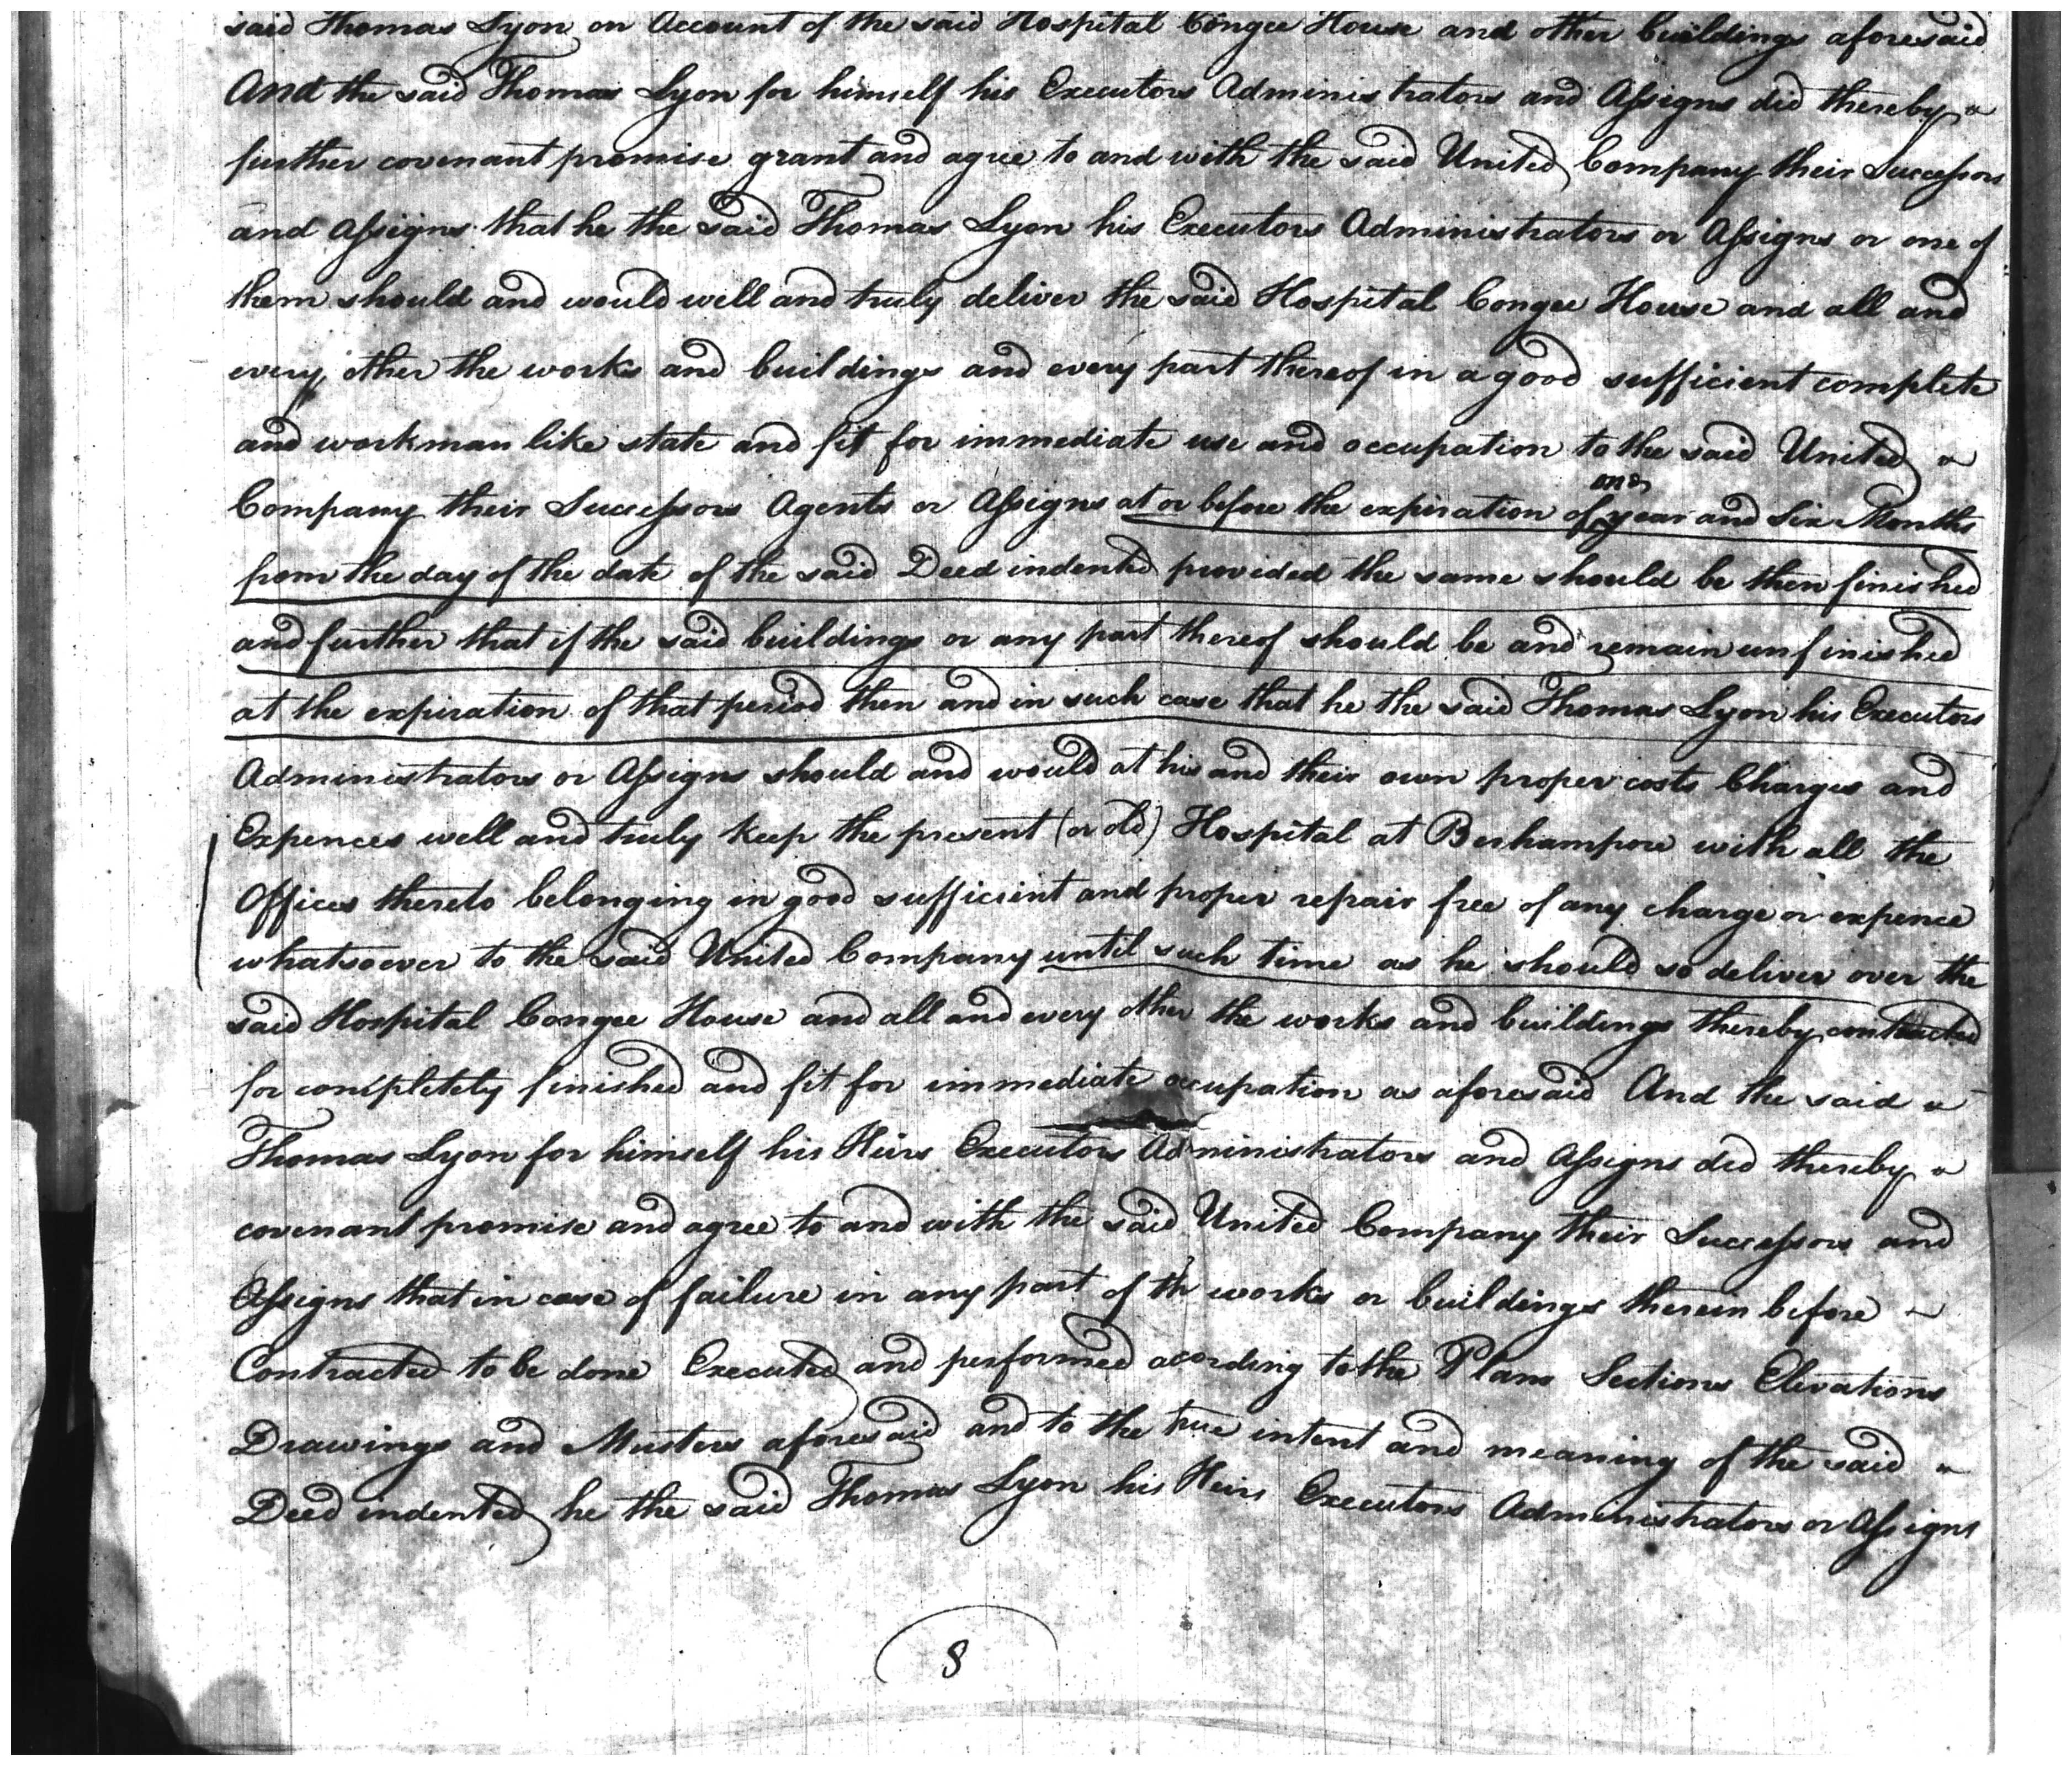 said Thomas Lyon on Account of the said Hospital Congee House and other buildings aforesaid
And the said Thomas Lyon for himself his Executors Administrators and Assigns did thereby
further covenant promise grant and agree to and with the said United Company their Successors
and Assigns that he the said Thomas Lyon his Executors Administrators or Assigns or one of
them should and would well and truly deliver the said Hospital Congee House and all and
every other the works and buildings and every part thereof in a good sufficient complete
and workman like state and fit for immediate use and occupation to the said United
one
Company their Successors Agents or Assigns at or before the expiration of year and Six Months
from the day of the date of the said Deed indented provided the same should be then finished
and further that if the said buildings or any part thereof should be and remain unfinished
at the expiration of that period then and in such case that he the said Thomas Lyon his Executors
Administrators or Assigns should and would at his and their own proper costs Charges and
Expences well and truly keep the present (or old) Hospital at Berhampore with all the
Offices thereto belonging in good sufficient and proper repair free of any charge or expence
whatsoever to the said United Company until such time as he should so deliver over the
said Hospital Congee House and all and every other the works and buildings thereby contracted
for completely finished and fit for immediate occupation as aforesaid And the said
Thomas Lyon for himself his Heirs Executors Administrators and Assigns did thereby
covenant promise and agree to and with the said United Company their Successors and
Assigns that in case of failure in any part of th works or buildings therein before
Contracted to be done Executed and performed acording to the Plans Sections Elevations
Drawings and Musters aforesaid and to the true intent and meaning of the said
Deed indented he the said Thomas Lyon his Heirs Executors Administrators or Assigns
8